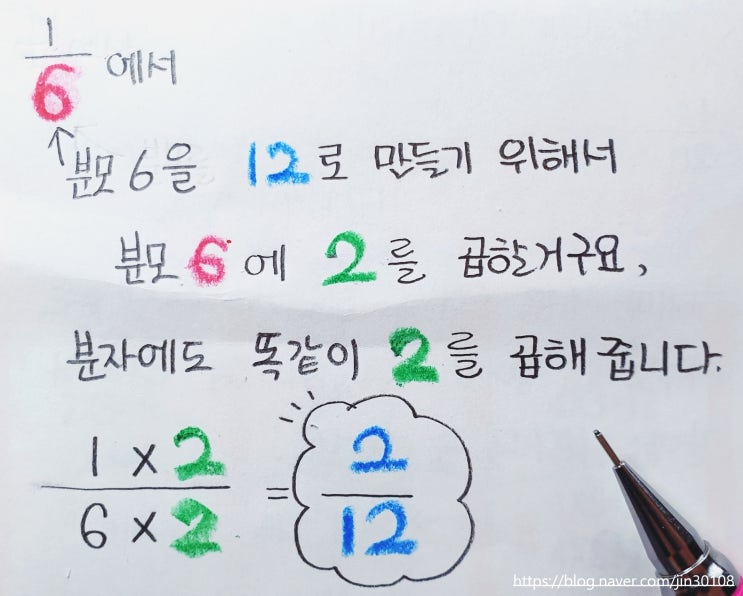 1
6 에서
↑분모 6을 12로 만들기 위해서
분모 6에 2를 곱할거구요,
분자에도 똑같이 2를 곱해 줍니다.
1 × 2
6 × 2
=
2
12
https://blog.naver.com/jin30108